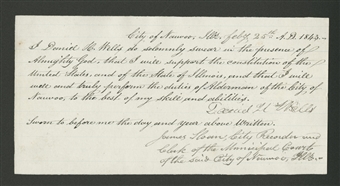 City of Nauvoo, Ills. July 25th A.D. 1843.
I Daniel H. Wells do solemnly swear in the presence of
Almighty God, that I will support the constitution of the
United States, and of the State of Illinois, and that I will
well and truly perform the duties of Alderman of the City of
Nauvoo, to the best of my skill and abilities.
Daniel H. Wells
Sworn to before me the day and year above Written.
James Sloan City Recorder and
Clerk of the Municipal Court
of the said City of Nauvoo, Ills.